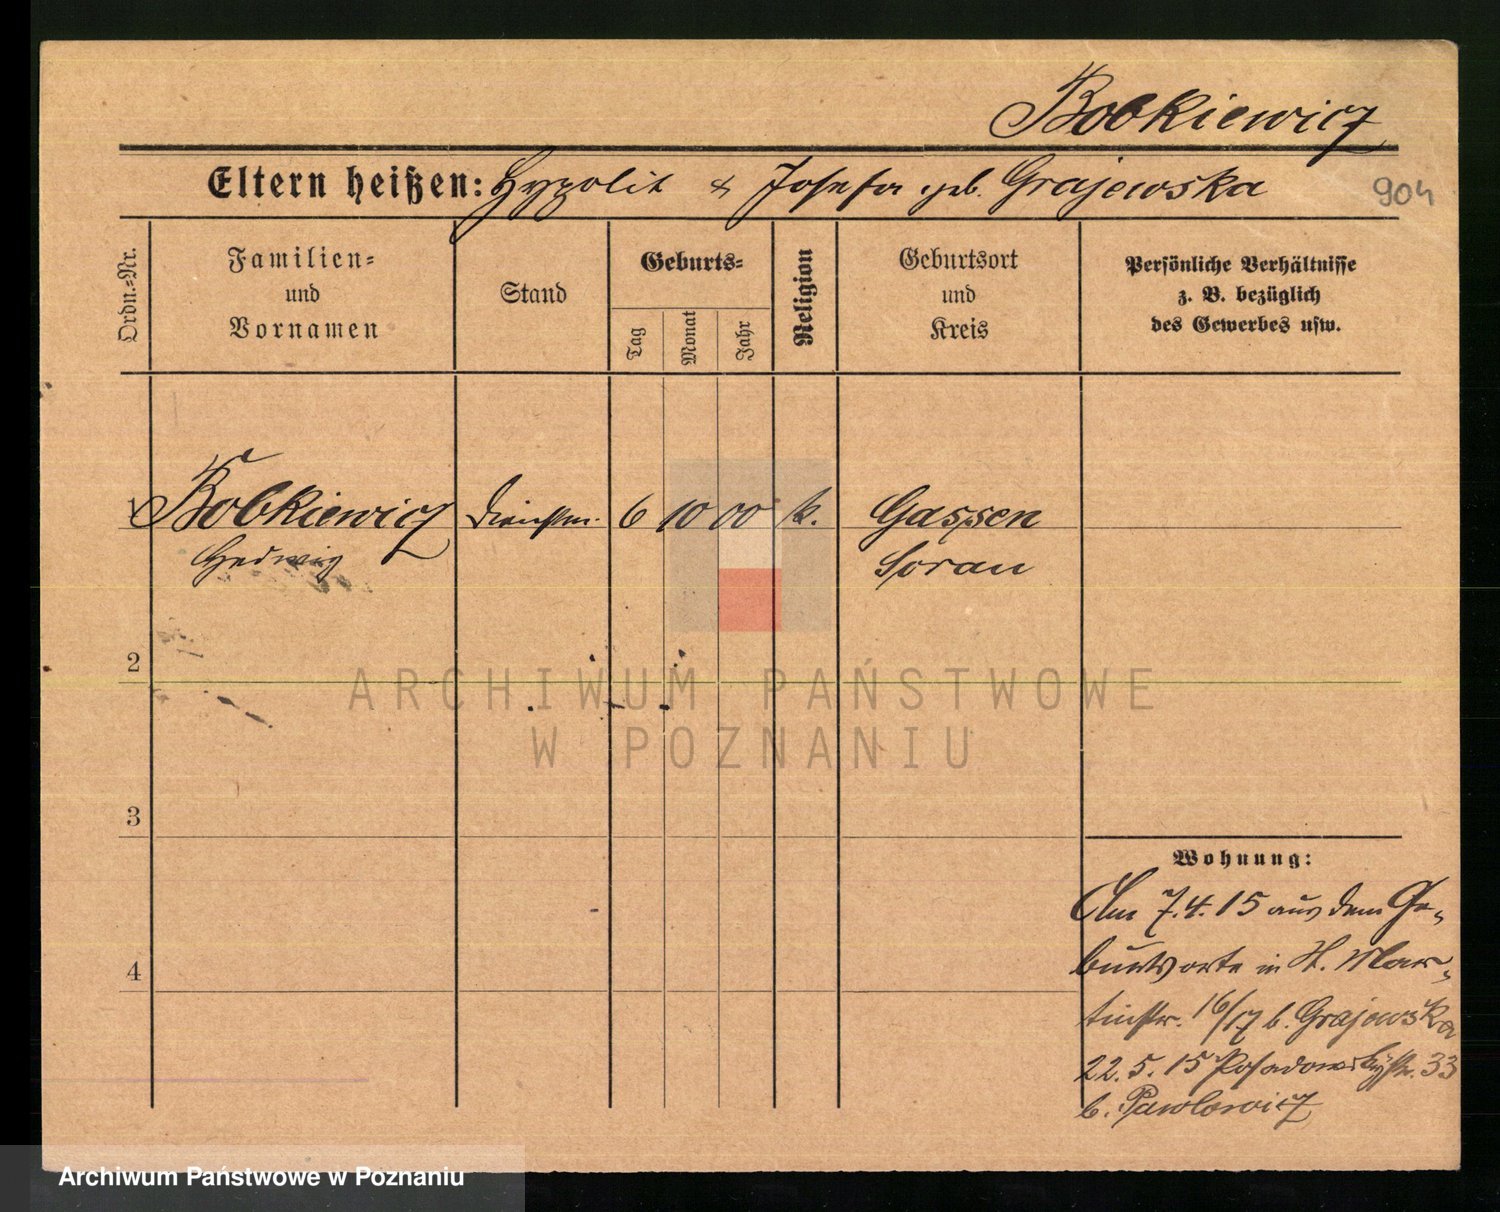 Bobkiewicz
Eltern heißen: Hypolit & Josefa geb. Grajewska
904
Ordn.-Nr.
Familien-
und
Vornamen
Stand
Geburts-
Tag
Monat
Jahr
Religion
Geburtsort
und
Kreis
Persönliche Verhältnisse
z. B. bezüglich
des Gewerbes usw.
1 Bobkiewicz Dienstm. 6 10 00 k. Gassen
Hedwig Sorau
2
3
4
ARCHIWUM PAŃSTWOWE
W POZNANIU
Wohnung:
Am 7.4.15 aus dem Ge-
burtsorte in St. Mar-
tinstr. 16/17 b. Grajewska
22.5.15 Posadowskystr. 33
b. Pawlowicz
Archiwum Państwowe w Poznaniu